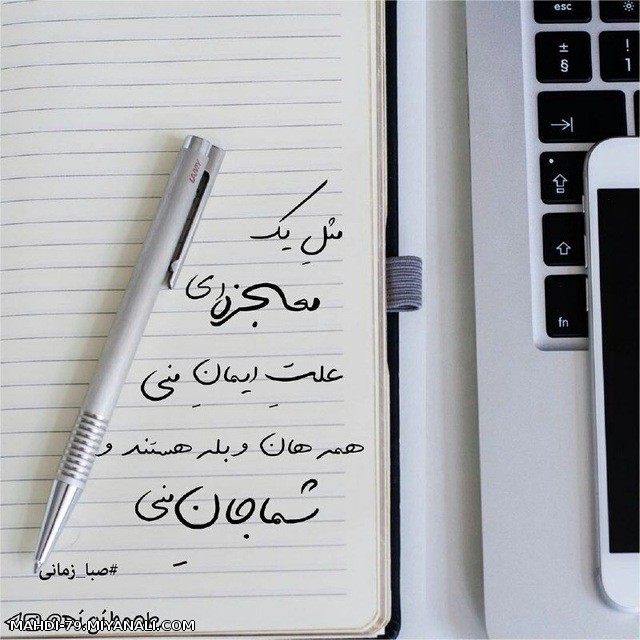 esc
±
§
!
1
LAMY
مثلِ یک
معجزه‌ای
fn
علتِ ایمانِ منی
همه هان و بله هستند و
شما جانِ منی
#صبا_زمانی
MAHDI-79.MIYANALI.COM